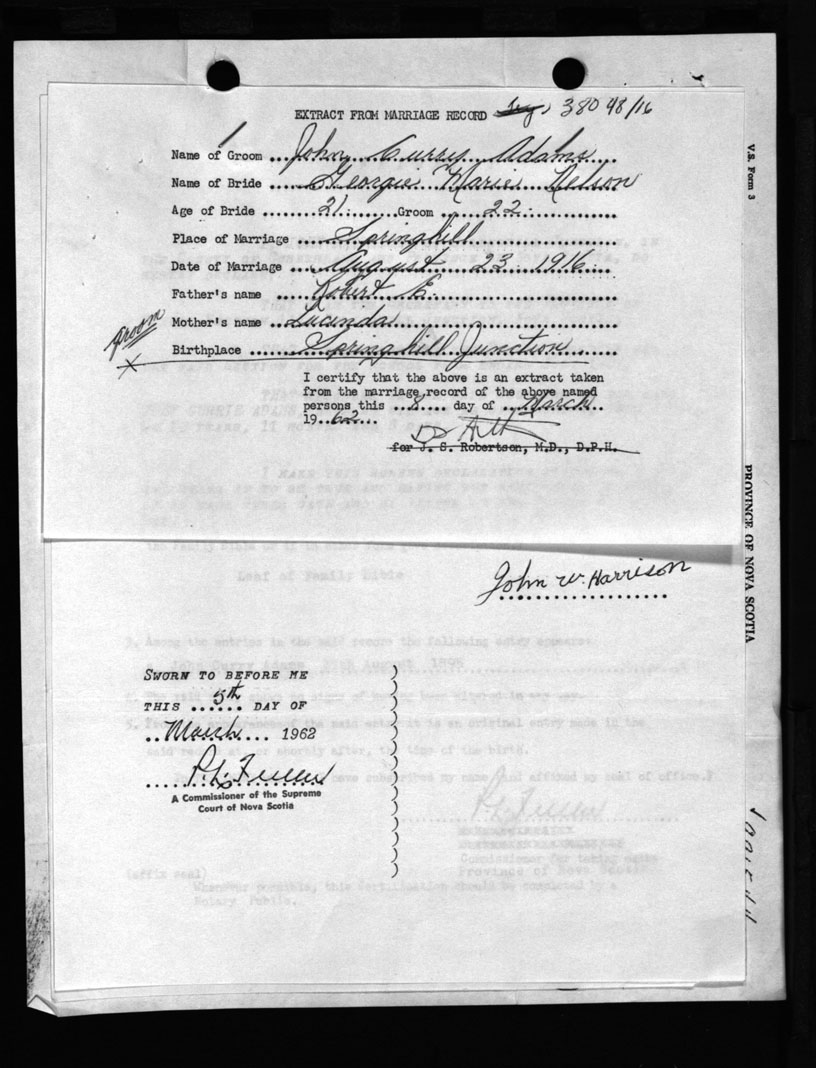 EXTRACT FROM MARRIAGE RECORD 380 48/16
Name of Groom ... John Curry Adams ...
Name of Bride ... Georgie Marie Nelson
Age of Bride ... 21 ... Groom ... 22 ...
Place of Marriage ... Springhill ...
Date of Marriage ... August 23 1916 ...
Father's name ... Robert E. ...
Mother's name ... Lucinda ...
Groom
X Birthplace ... Springhill Junction ...
I certify that the above is an extract taken
from the marriage record of the above named
persons this ... 8 ... day of ... March ...
19 ... 62 ...
for J. S. Robertson, M.D., D.P.H.
John W. Harrison
Leaf of Family Bible
3. Among the entries in the said record the following entry appears:
John Curry Adams August 1895
SWORN TO BEFORE ME
THIS ... 5th ... DAY OF
... March ... 1962
5. said entry it is an original entry made in the
said record at, or shortly after, the time of the birth.
A Commissioner of the Supreme
Court of Nova Scotia
my name and affixed my seal of office.
Commissioner for taking
Province of Nova Scotia
(affix seal)
Whenever possible, this certification should be completed by a
Notary Public.
V.S. Form 3
PROVINCE OF NOVA SCOTIA